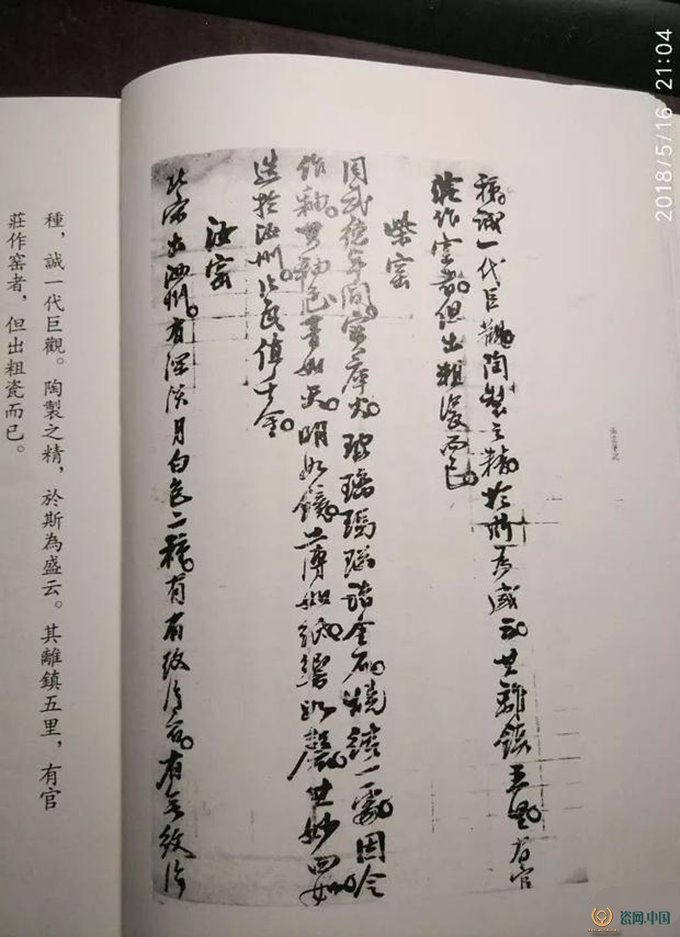 種。誠一代巨觀。陶製之精。於斯爲盛云。其離鎮五里。有官
莊作窑者。但出粗瓷而已。
柴窑
周武德年間。寶庫火。玻璃瑪瑙諸金石燒結一處。因令
作釉。其釉色青如天。明如鏡。薄如紙。響如磬。其妙四如
造於汝州。瓷值千金。
汝窑
北宋出汝州。有深淡月白色二種。有有紋片者。有無紋片
種，誠一代巨觀。陶製之精，於斯為盛云。其離鎮五里，有官
莊作窑者，但出粗瓷而已。
2018/5/16 21:04
瓷网.中国